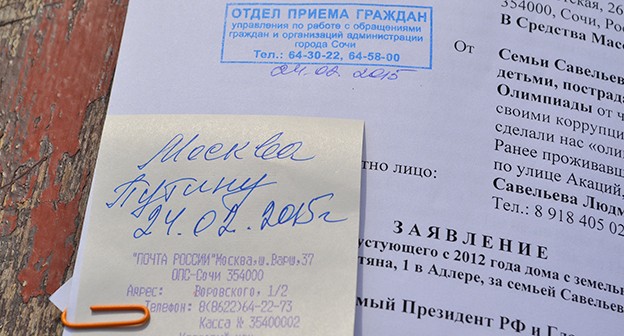 ОТДЕЛ ПРИЕМА ГРАЖДАН
управления по работе с обращениями
граждан и организаций администрации
города Сочи
Тел.: 64-30-22, 64-58-00
24.02.2015
354000, Сочи, Рос
В Средства Масс
От
Семьи Савельев
детьми, пострада
Олимпиады от ч
своими коррупци
сделали нас «оли
Ранее проживавш
по улице Акаций,
тно лицо:
Савельева Людм
Тел.: 8 918 405 02
ЗАЯВЛЕНИЕ
устующего с 2012 года дома с земель
тяна, 1 в Адлере, за семьей Савельев
мый Президент РФ и Гл
Москва
Путину
24.02.2015г
"ПОЧТА РОССИИ"Москва,ш.Варш,37
ОПС-Сочи 354000
Адрес: Воровского, 1/2
Телефон: 8(8622)64-22-73
Касса № 35400002